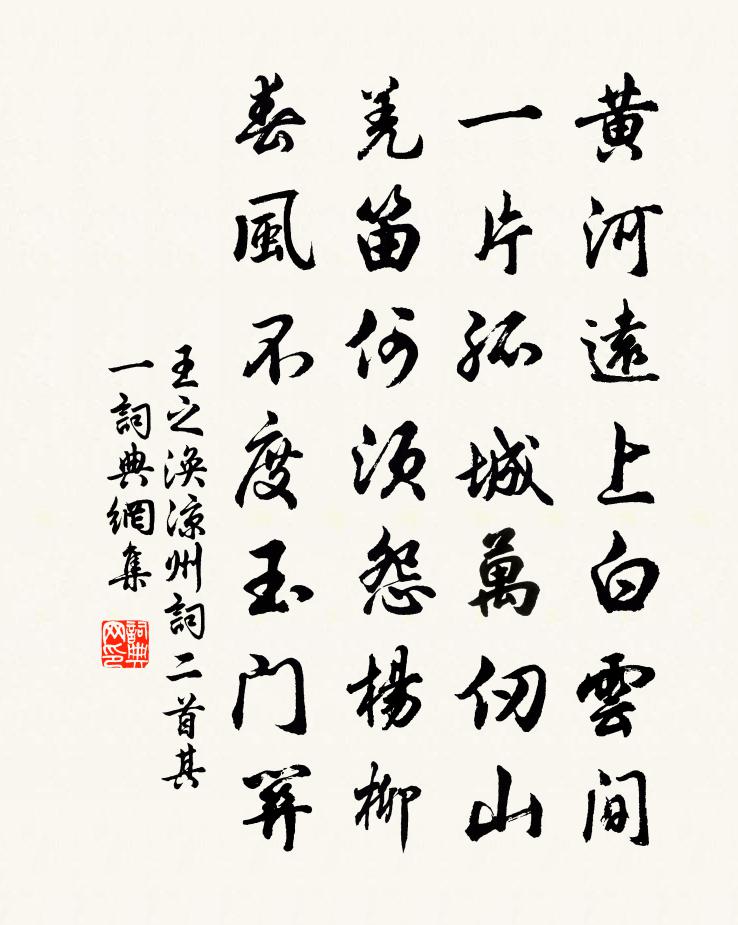 黄河遠上白雲間
一片孤城萬仞山
羌笛何須怨楊柳
春風不度玉门關
王之渙涼州詞二首其
一詞典網集
詞典网印